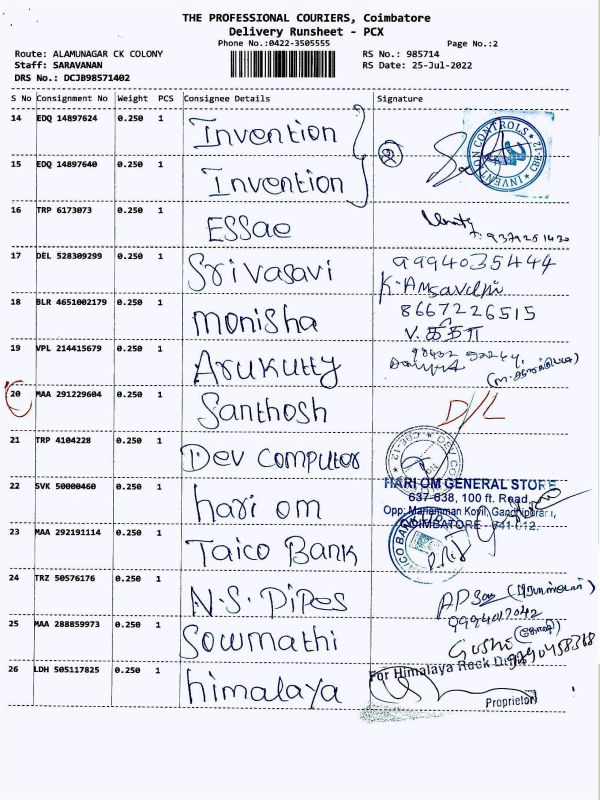 THE PROFESSIONAL COURIERS, Coimbatore
Delivery Runsheet - PCX
Phone No.:0422-3505555
Page No.:2
Route: ALAMUNAGAR CK COLONY
RS No.: 985714
Staff: SARAVANAN
RS Date: 25-Jul-2022
DRS No.: DCJB98571402
S No Consignment No Weight PCS Consignee Details Signature
14 EDQ 14897624 0.250 1 Invention
INVENTION CONTROLS CBE-12
15 EDQ 14897640 0.250 1 Invention
16 TRP 6173073 0.250 1 ESSae
17 DEL 528309299 0.250 1 Srivasavi 9994035444
18 BLR 4651002179 0.250 1 monisha 8667226515
19 VPL 214415679 0.250 1 Arukutty
20 MAA 291229604 0.250 1 Santhosh D/L
21 TRP 4104228 0.250 1 Dev computer
22 SVK 50000460 0.250 1 hari om
HARI OM GENERAL STORE
637-638, 100 ft. Road,
Opp: Mariamman Kovil, Gandhipuram,
COIMBATORE - 641 012.
23 MAA 292191114 0.250 1 Taico Bank
24 TRZ 50576176 0.250 1 N.S. Pipes
9994017042
25 MAA 288859973 0.250 1 Sowmathi
26 LDH 505117825 0.250 1 himalaya
For Himalaya Rock
Proprietor